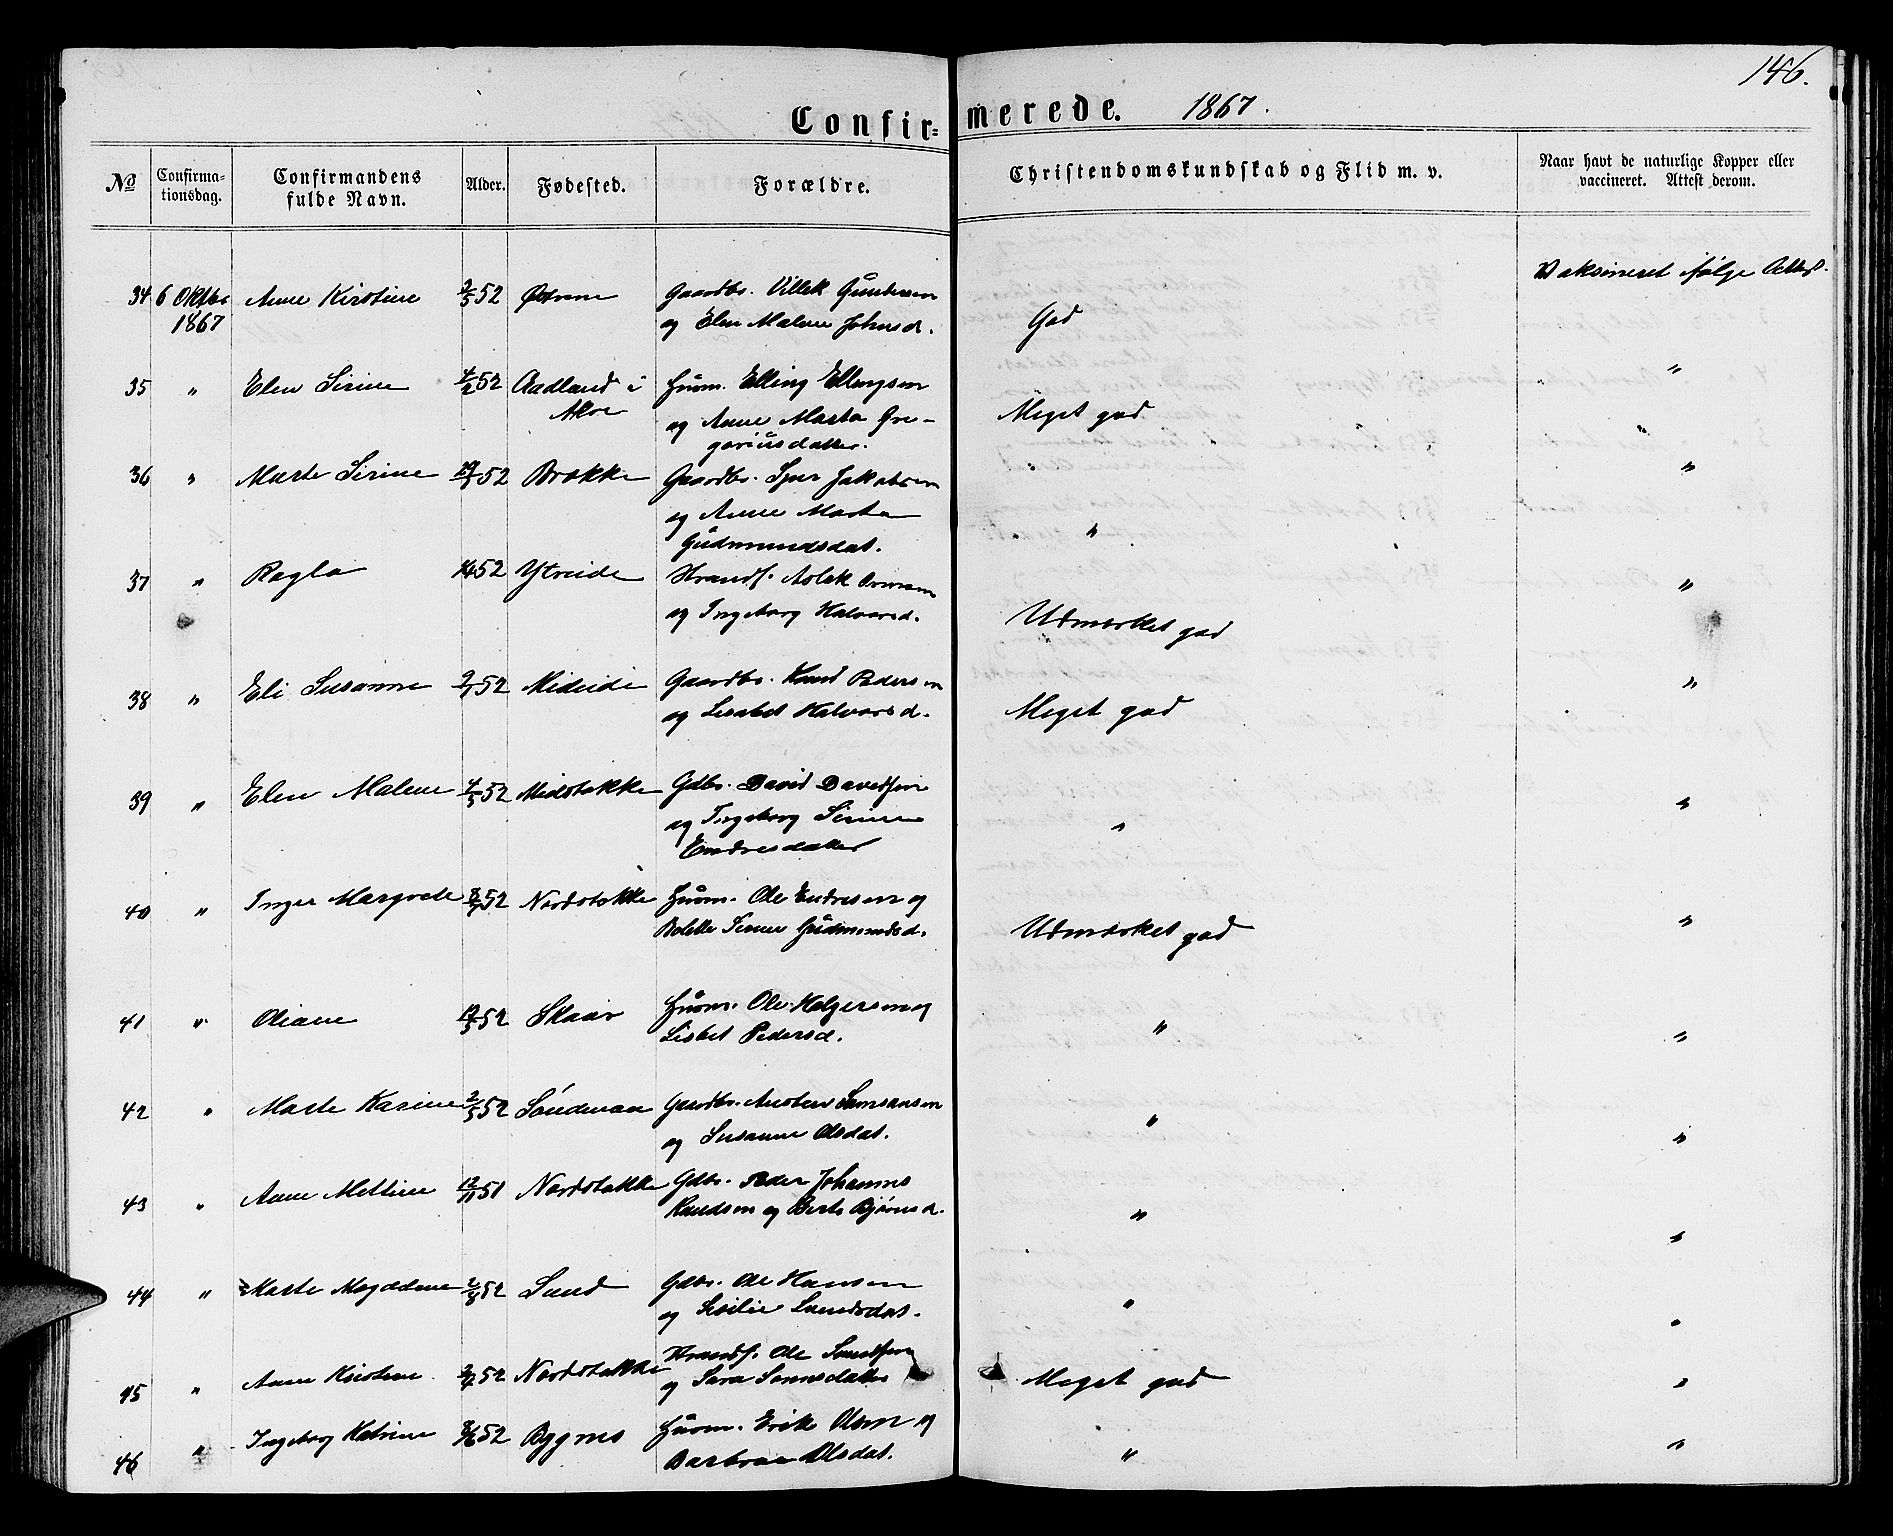 146.
Confirmerede. 1867.
No
Confirmationsdag.
Confirmandens fulde Navn.
Alder.
Fødested.
Forældre.
Christendomskundskab og Flid m. v.
Naar havt de naturlige Kopper eller vaccineret. Attest derom.
34 6 Oktbr 1867 Anne Kirstine 2/5 52 Østrem Gaardbr. Villek Gundersen
og Elen Malene Johnsd. God Vaksineret ifølge Attest.
35 " Elen Sirine 4/2 52 Aadland i Huusm. Elling Ellingsen
og Anne Marta Gre-
goriusdatter. Meget god "
36 " Marte Sirine 52 Brække Gaardbr. Sjur Jakobsen
og Anne Marta
Gudmundsdat. " "
37 " Ragla 52 Ytreide Strands. Aslak
og Ingeborg Halvorsd. Udmærket god "
38 " Eli Susanne 52 Mideide Gaardbr. Knud Pedersen
og Lisabet Halvorsd. Meget god "
39 " Elen Malene 4/5 52 Midstokke Gdbr. David Davidsen
og Ingeborg Sirine
Endresdatter " "
40 " Inger Margrete 52 Nordstokke Huusm. Ole Endresen og
Bolette Sirine Gudmundsd. Udmærket god "
41 " Oliane 52 Skaar Huusm. Ole Holgersen og
Lisbet Pedersd. " "
42 " Marte Karine 2/5 52 Søndenaa Gaardbr. Austen Samsonsen
og Susanne Olsdat. " "
43 " Anne Mettine 12/11 51 Nordstokke Gdbr. Peder Johannes
Knudsen og Berte Bjørnsd. " "
44 " Marte Magdalene 2/8 52 Sund Gdbr. Ole Hansen
og Sisilie Svendsdat. " "
45 " Anne Kirstine 52 Nordstokke Strands. Ole
og Sara Sannesdatter Meget god "
46 " Ingeborg Katrine 52 Bygnes Huusm. Erik Olsen og
Barbroe Olsdat. " "